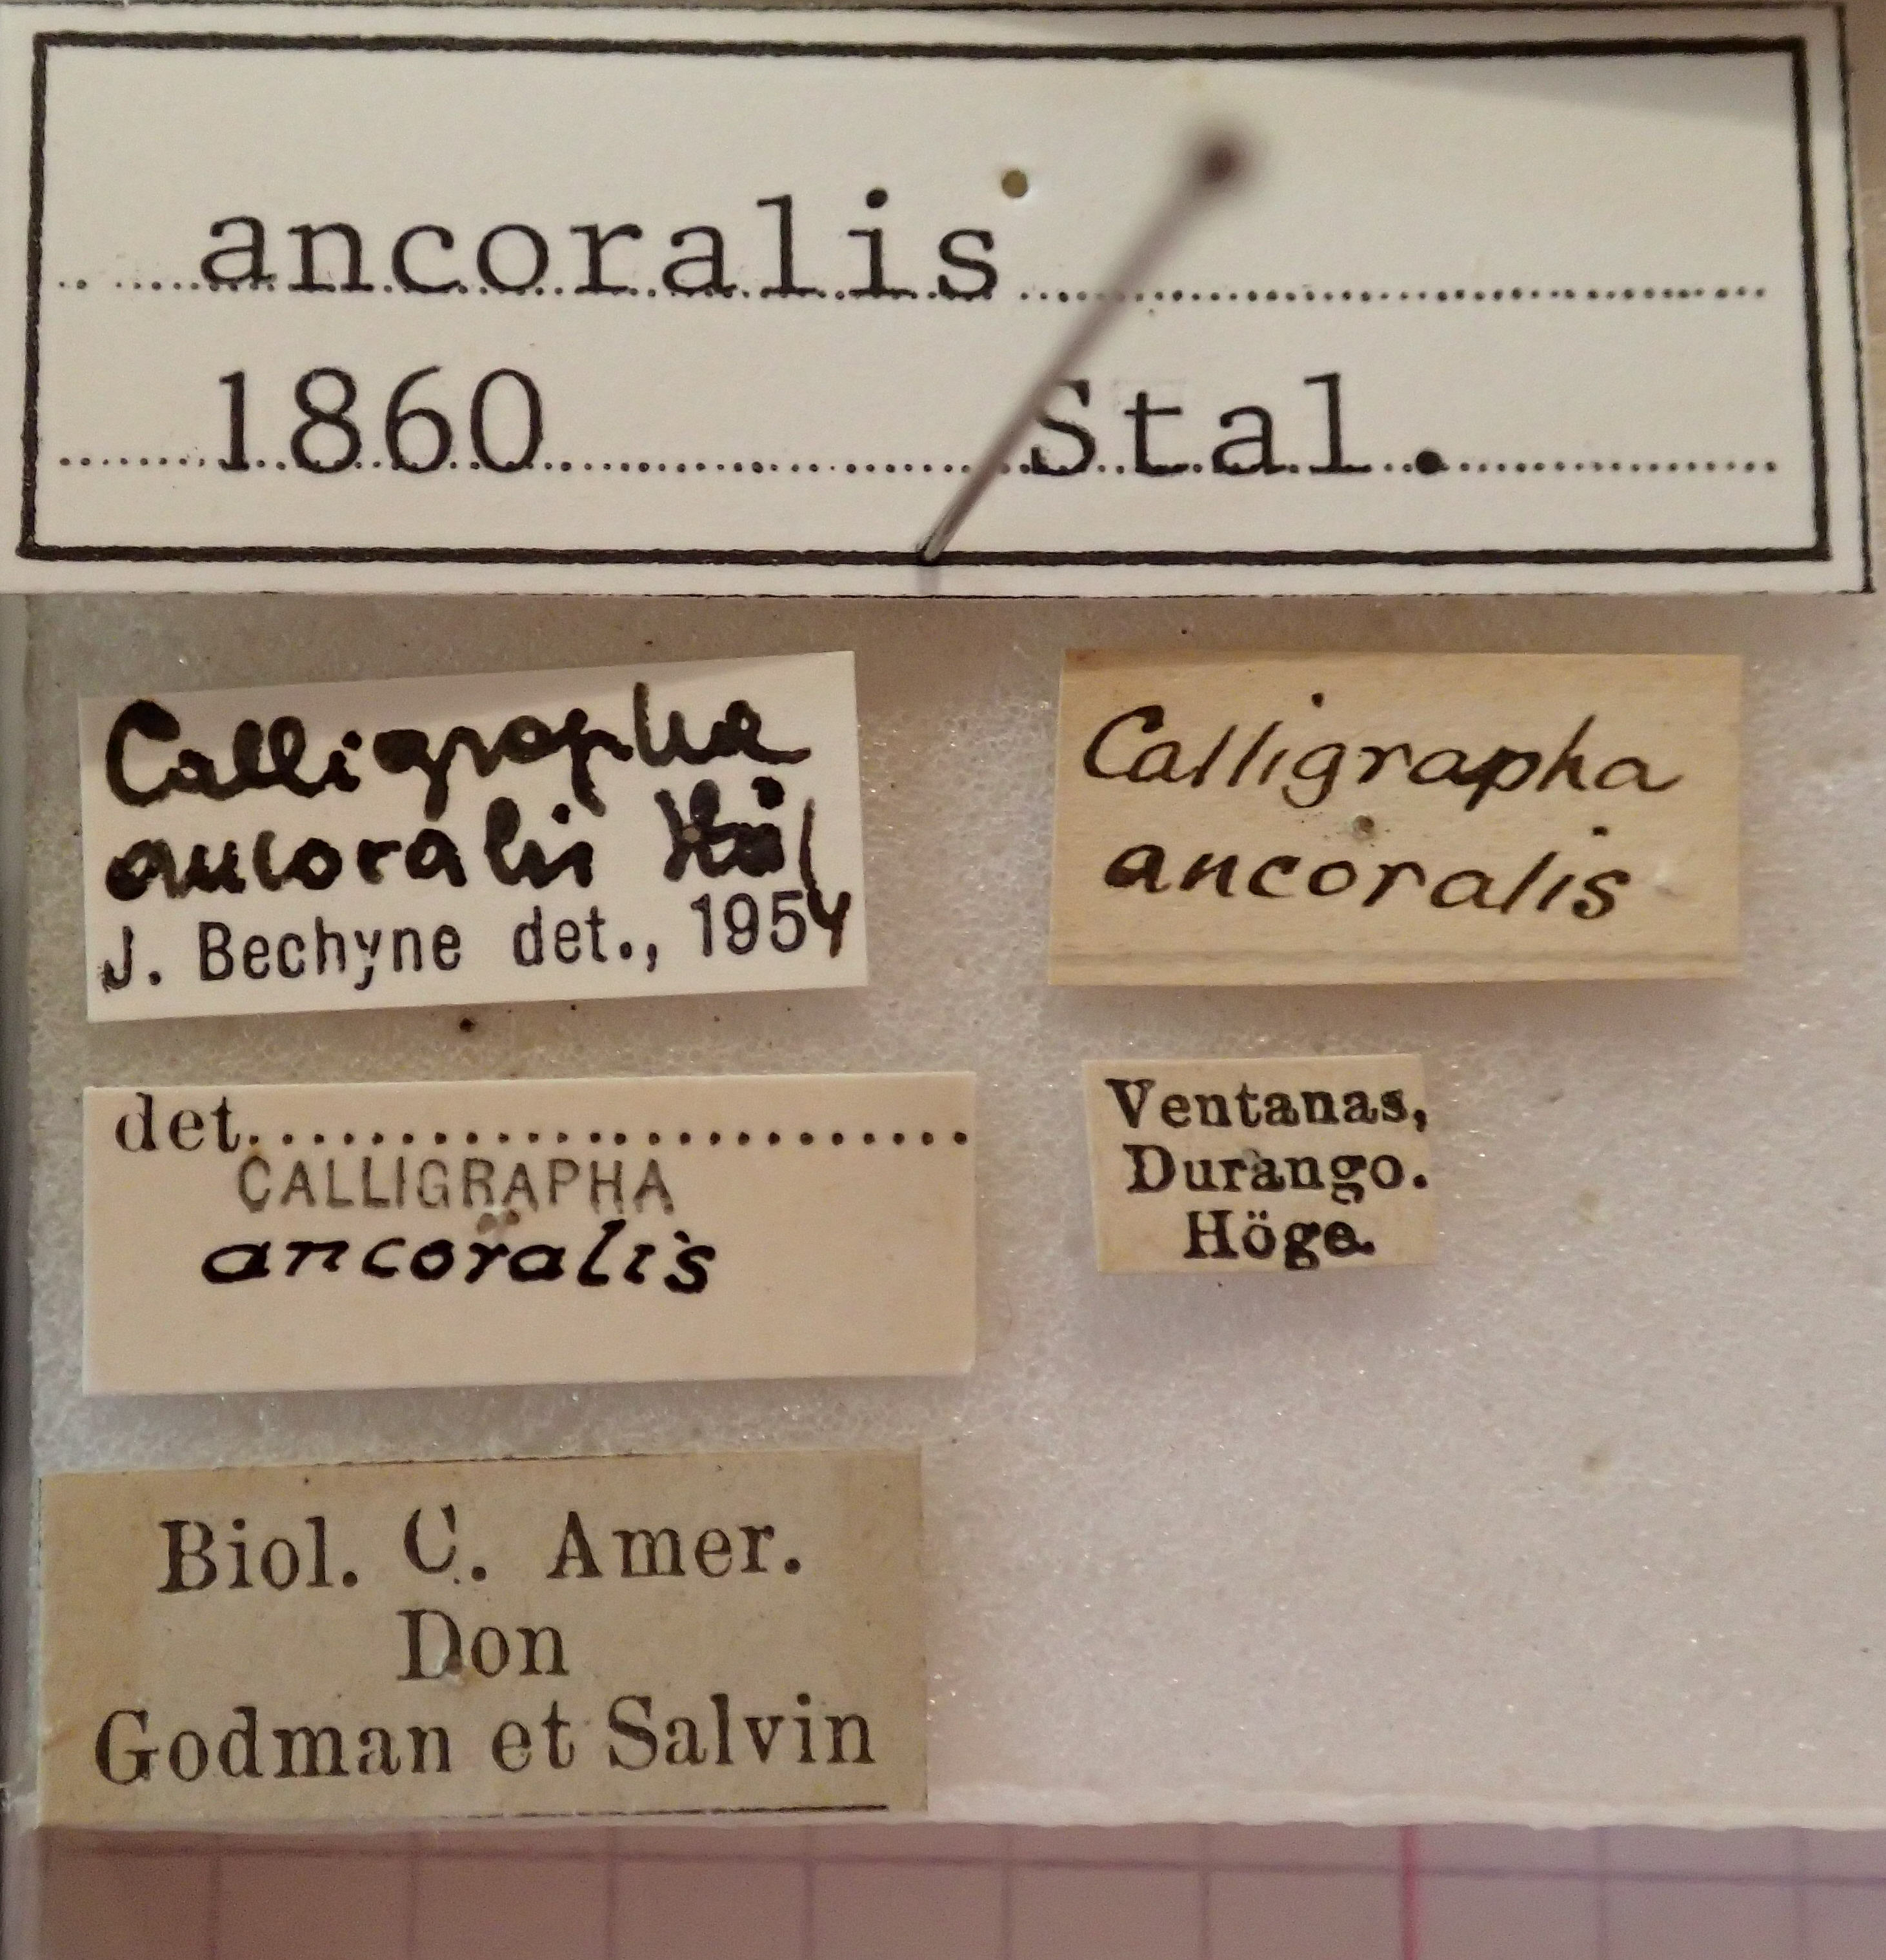 ancoralis
1860 Stal.
Calligrapha
ancoralis
J. Bechyne det., 1954
Calligrapha
ancoralis
det.
CALLIGRAPHA
ancoralis
Ventanas,
Durango.
Höge.
Biol. C. Amer.
Don
Godman et Salvin